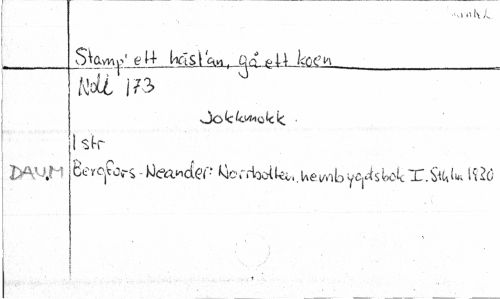 Stamp' ett häst'an, gå ett koen
Noli 173
Jokkmokk.
1 str
DAUM Bergfors-Neander: Norrbotten, hembygdsbok I. Sthlm 1930